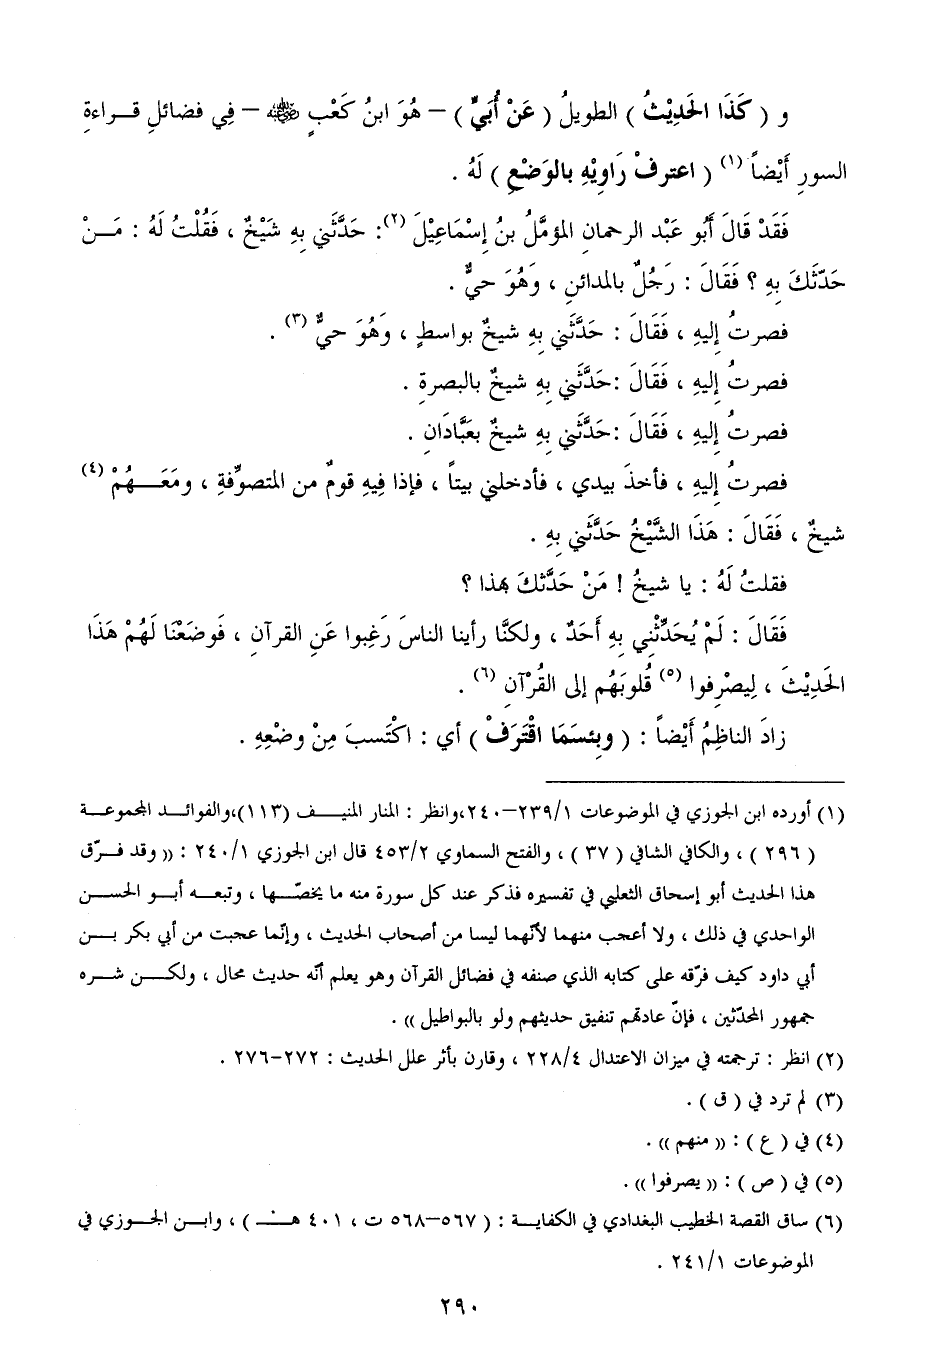 و ( كَذَا الحَدِيْثُ ) الطويلُ ( عَنْ أُبَيٍّ ) – هُوَ ابنُ كَعْبٍ ﵁ – فِي فضائلِ قـــراءةِ
السورِ أَيْضاً (١) ( اعترفْ رَاوِيْهِ بالوَضْعِ ) لَهُ .
فَقَدْ قَالَ أَبُو عَبْد الرحمانِ المؤمَّلُ بنُ إِسْمَاعِيْلَ (٢): حَدَّثَنِي بِهِ شَيْخٌ ، فَقُلْتُ لَهُ : مَـــنْ
حَدّثَكَ بِهِ ؟ فَقَالَ : رَجُلٌ بالمدائنِ ، وَهُوَ حيٌّ .
فصرتُ إِليهِ ، فَقَالَ : حَدَّثَنِي بِهِ شيخٌ بواسطٍ ، وَهُوَ حيٌّ (٣) .
فصرتُ إِليهِ ، فَقَالَ :حَدَّثَنِي بِهِ شيخٌ بالبصرةِ .
فصرتُ إِليهِ ، فَقَالَ :حَدَّثَنِي بِهِ شيخٌ بعَبَّادَانِ .
فصرتُ إِليهِ ، فأخذَ بيدي ، فأدخلني بيتاً ، فإذا فِيهِ قومٌ من المتصوِّفةِ ، ومَعَـــهُمْ (٤)
شيخٌ ، فَقَالَ : هَذَا الشَّيْخُ حَدَّثَنِي بِهِ .
فقلتُ لَهُ : يا شيخُ ! مَنْ حَدَّثكَ بهذا ؟
فَقَالَ : لَمْ يُحَدِّثْنِي بِهِ أَحَدٌ ، ولكنَّا رأينا الناسَ رَغِبوا عَنِ القرآنِ ، فَوضَعْنَا لَهُمْ هَذَا
الحَدِيْثَ ، لِيصْرِفوا (٥) قُلوبَهُم إلى القُرْآنِ (٦) .
زادَ الناظِمُ أَيْضاً : ( وبِئسَمَا اقْتَرَفْ ) أي : اكْتَسبَ مِنْ وضْعِهِ .
(١) أورده ابن الجوزي في الموضوعات ٢٣٩/١–٢٤٠،وانظر : المنار المنيـــف (١١٣)،والفوائـــد المجموعـــة
( ٢٩٦ ) ، والكافي الشافي ( ٣٧ ) ، والفتح السماوي ٤٥٣/٢ قال ابن الجوزي ٢٤٠/١ : (( وقد فـــرّق
هذا الحديث أبو إسحاق الثعلبي في تفسيره فذكر عند كل سورة منه ما يخصّـــها ، وتبعـــه أبـــو الحسن
الواحدي في ذلك ، ولا أعجب منهما لأنّهما ليسا من أصحاب الحديث ، وإنّما عجبت من أبي بكر بـــن
أبي داود كيف فرّقه على كتابه الذي صنفه في فضائل القرآن وهو يعلم أنّه حديث محال ، ولكـــن شره
جمهور المحدّثين ، فإنّ عادتهم تنفيق حديثهم ولو بالبواطيل )) .
(٢) انظر : ترجمته في ميزان الاعتدال ٢٢٨/٤ ، وقارن بأثر علل الحديث : ٢٧٢–٢٧٦ .
(٣) لم ترد في ( ق ) .
(٤) في ( ع ) : (( منهم )) .
(٥) في ( ص ) : (( يصرفوا )) .
(٦) ساق القصة الخطيب البغدادي في الكفاية : ( ٥٦٧–٥٦٨ ت ، ٤٠١ هـــ ) ، وابـــن الجـــوزي في
الموضوعات ٢٤١/١ .
٢٩٠